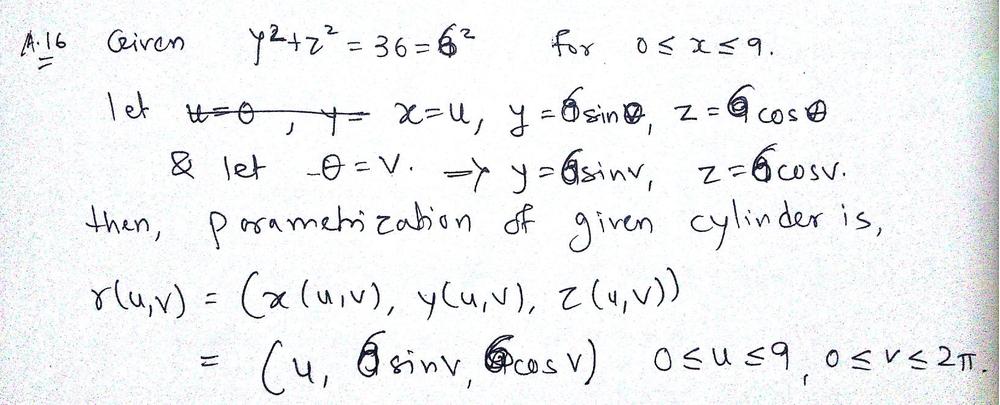 A.16 Given y²+z² = 36 = 6² for 0 ≤ x ≤ 9.
let u=θ, y= x=u, y = 6 sin θ, z = 6 cos θ
& let θ = v. → y = 6 sin v, z = 6 cos v.
then, parametrization of given cylinder is,
r(u,v) = (x(u,v), y(u,v), z(u,v))
= (u, 6 sin v, 6 cos v) 0 ≤ u ≤ 9, 0 ≤ v ≤ 2π.